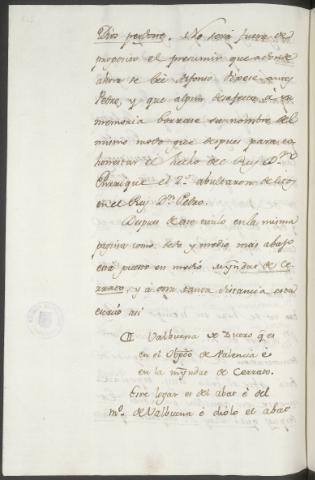 Dios perdone. No será fuera de
proposito el presumir que adonde
ahora se lee Alfonso dijese antes
Pedro, y que algun desafecto á su
memoria borrase su nombre del
mismo modo que despues para co-
honestar el hecho del Rey Dn.
Enrrique el 2º. abultaron delitos
en el Rey Dn. Pedro.
Despues de este titulo en la misma
pagina como dedo y medio mas abajo
está puesto en medio Myndat de Ce-
rrato, y a otra tanta distancia esta
escrito asi
Valbuena de Duero q̃ es
en el Obpdo de Palencia é
en la mỹndat de Cerrato.
Este logar es del abat é del
mº. de Valbuena é diólo el abat